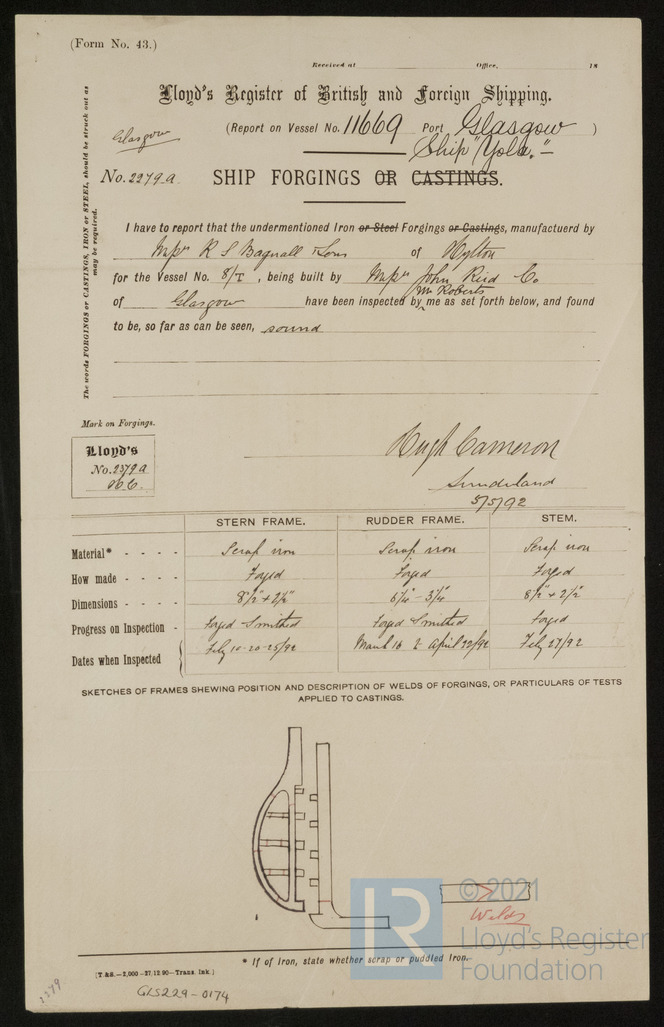 (Form No. 43.)
Received at Office, 18
Lloyd's Register of British and Foreign Shipping.
(Report on Vessel No. 11669 Port Glasgow )
Glasgow
Ship "Yola."
No. 2279a SHIP FORGINGS OR CASTINGS.
The words FORGINGS or CASTINGS, IRON or STEEL, should be struck out as
may be required.
I have to report that the undermentioned Iron or Steel Forgings or Castings, manufactuerd by
R S Bagnall & Sons of Hylton
for the Vessel No. 8/T , being built by John Reid Co
of Glasgow have been inspected by me as set forth below, and found
Mr Roberts
to be, so far as can be seen, sound
Mark on Forgings.
Lloyd's
No. 2379a
H.C.
Hugh Cameron
Sunderland
5/5/92
STERN FRAME. RUDDER FRAME. STEM.
Material* - - - - Scrap iron Scrap iron Scrap iron
How made - - - - Forged Forged Forged
Dimensions - - - - 8½" + 2½" 6¼" - 3¼" 8½" + 2½"
Progress on Inspection - Forged & smithed Forged & smithed Forged
Dates when Inspected Feby 10-20-25/92 March 16 & April 22/92 Feby 27/92
SKETCHES OF FRAMES SHEWING POSITION AND DESCRIPTION OF WELDS OF FORGINGS, OR PARTICULARS OF TESTS
APPLIED TO CASTINGS.
Welds
© 2021
LR
Lloyd's Register
Foundation
* If of Iron, state whether scrap or puddled Iron.
[T & S.—2,000—27.12.90—Trans. Ink.]
2379
GLS229-0174